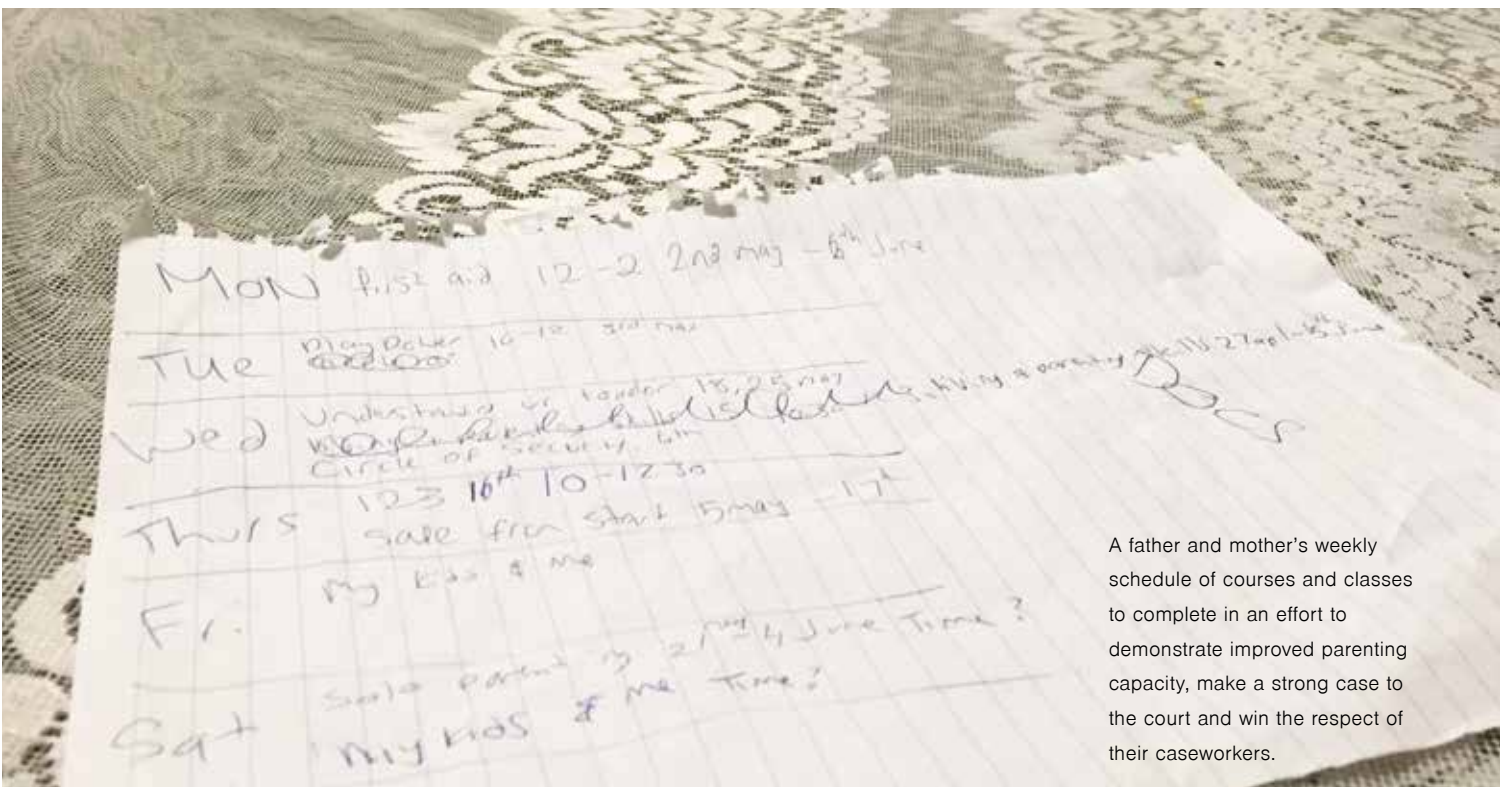 MON first aid 12-2 2nd may - 6th June
Tue 10-12 3rd may
Wed Understand ur toddler 18, 25 may
Circle of Security
Thurs 123 16th 10-12 30
safe from start 5 may - 17th
Fr. My kids & me
Sat 21 may 4 June Time?
my kids & me Time?
A father and mother's weekly
schedule of courses and classes
to complete in an effort to
demonstrate improved parenting
capacity, make a strong case to
the court and win the respect of
their caseworkers.